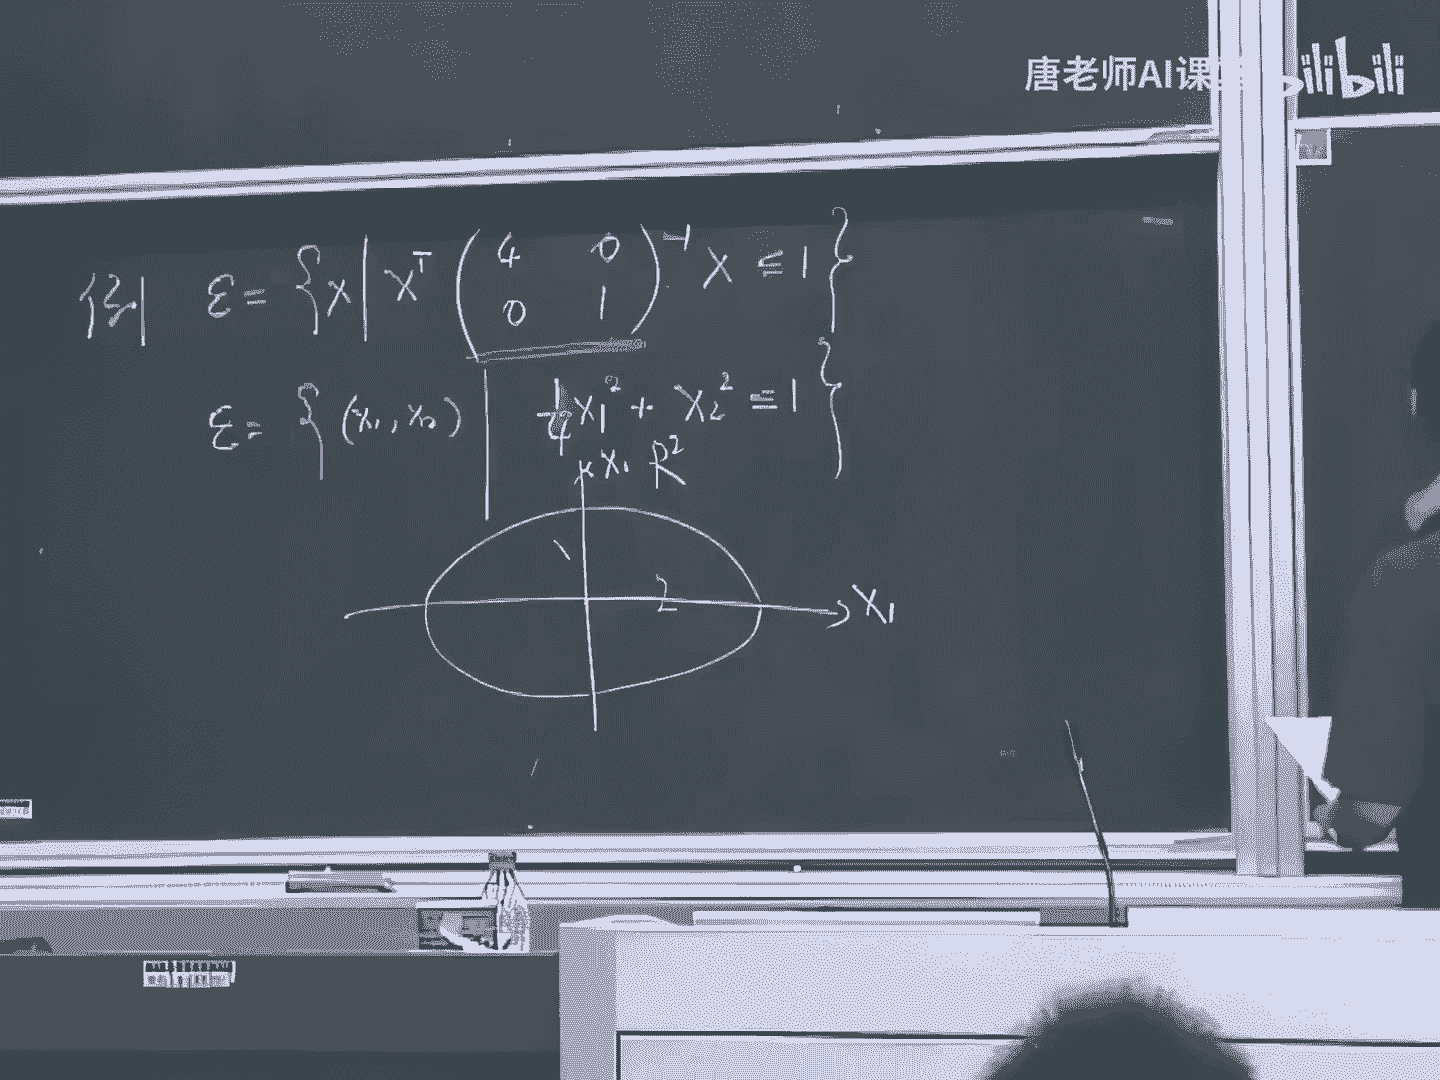 唐老师AI课 bilibili
例 ε = { X | X^T ( 4 0 0 1 )^-1 X ≤ 1 }
ε = { (x1, x2) | 1/4 X1^2 + X2^2 ≤ 1 }
X1 R^2
1
2
X1